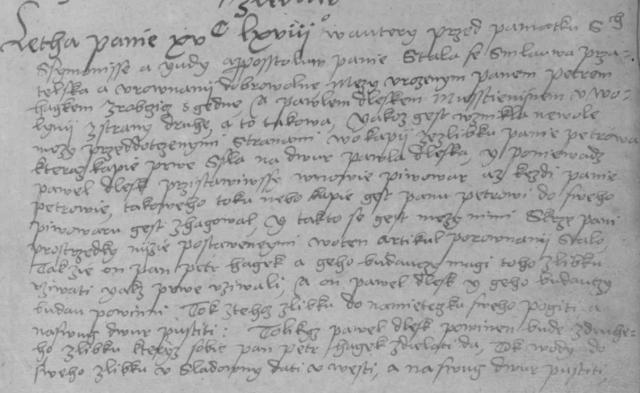 Letha panie xvC lxviii° w autery przed pamatku Sch
Ssymonisse a Yudy appossstoluw panie Stala se Smlauwa prza-
telska a vrownanii dobrowolne mezy vrozenym panem Petrem
hagkem z robczicz s gedne A Pawlem dleskem w wo-
lynii z strany druhe, a to takowa, Yakoz gest wznikla newole
mezy przeddotczenymi Stranami wo kapii z zlibku panie petrowa
kteraz kapie prwe Ssla na dwur pawla dleska, y poniewadz
pawel dlesk przistawiwsse wnowie piwowar az kezdi panie
petrowie, takoweho toku nebo kapie gest panu petrowi do sweho
piwowaru gest zhagowal, y takto se gest mezy nimi Skrze pani
prostrzedky nize postawenymi wo ten artikul porownanii Stalo
Takzie on pan petr hagek a geho budauczy magi toho zlibku
vziwati yakz prwe vziwali, A on pawel dlesk y geho budauczy
budau powinni Tok z tehoz zlibku do namiesstka sweho pogiti a
na swug dwur pustiti: Tolikez pawel dlesk powinen bude z druhe-
ho zlibku kteryz sobie pan petr hagek zdielati da, Tok wody do
sweho zlibku v Sladowny dati vwesti, a na swug dwur pustiti